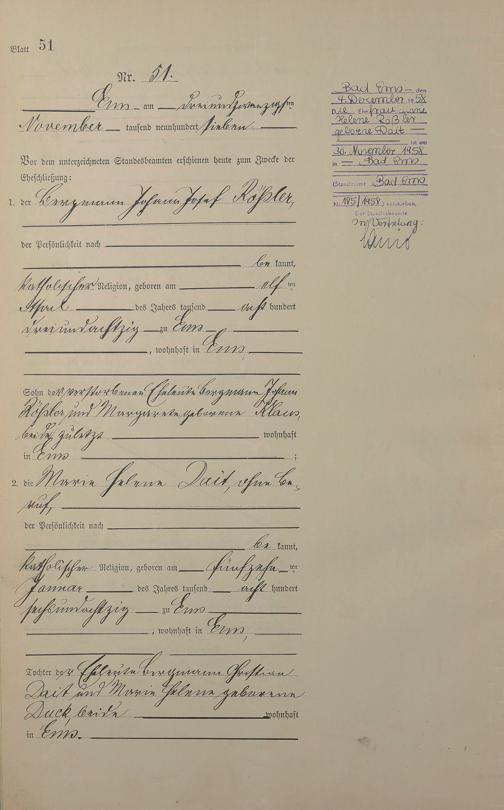 Blatt 51
Nr. 51.
Ems am dreiundzwanzigsten
November tausend neunhundert sieben
Vor dem unterzeichneten Standesbeamten erschienen heute zum Zwecke der
Eheschließung:
1. der Bergmann Johann Josef Rößler,
der Persönlichkeit nach
be kannt,
katholischer Religion, geboren am elf ten
April des Jahres tausend acht hundert
dreiundachtzig zu Ems
, wohnhaft in Ems,
Sohn der verstorbenen Eheleute Bergmann Johann
Rößler und Margarete geborene Klaus,
beide zuletzt wohnhaft
in Ems ;
2. die Marie Helene Dait, ohne Be-
ruf,
der Persönlichkeit nach
be kannt,
katholischer Religion, geboren am fünfzehn ten
Januar des Jahres tausend acht hundert
sechsundachtzig zu Ems
, wohnhaft in Ems,
Tochter der Eheleute Bergmann Christian
Dait und Marie Helene geborene
Duck, beide wohnhaft
in Ems.
Bad Ems den
4. Dezember 1958
Die Ehefrau Marie
Helene Rößler
geborene Dait
ist am
30. November 1958
in Bad Ems
Standesamt Bad Ems
Nr. 185/1958 verstorben.
Der Standesbeamte
In Vertretung: